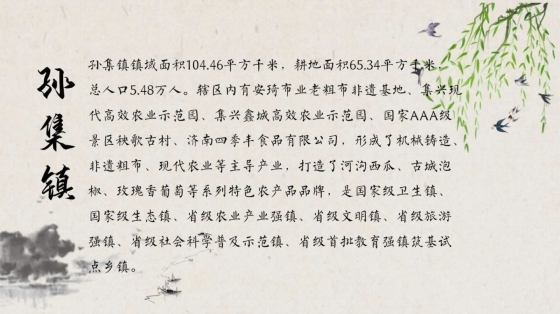 孙集镇
孙集镇镇域面积104.46平方千米，耕地面积65.34平方千米，
总人口5.48万人。辖区内有安琦布业老粗布非遗基地、集兴现
代高效农业示范园、集兴鑫城高效农业示范园、国家AAA级
景区秧歌古村、济南四季丰食品有限公司，形成了机械铸造、
非遗粗布、现代农业等主导产业，打造了河沟西瓜、古城泡
椒、玫瑰香葡萄等系列特色农产品品牌，是国家级卫生镇、
国家级生态镇、省级农业产业强镇、省级文明镇、省级旅游
强镇、省级社会科学普及示范镇、省级首批教育强镇筑基试
点乡镇。